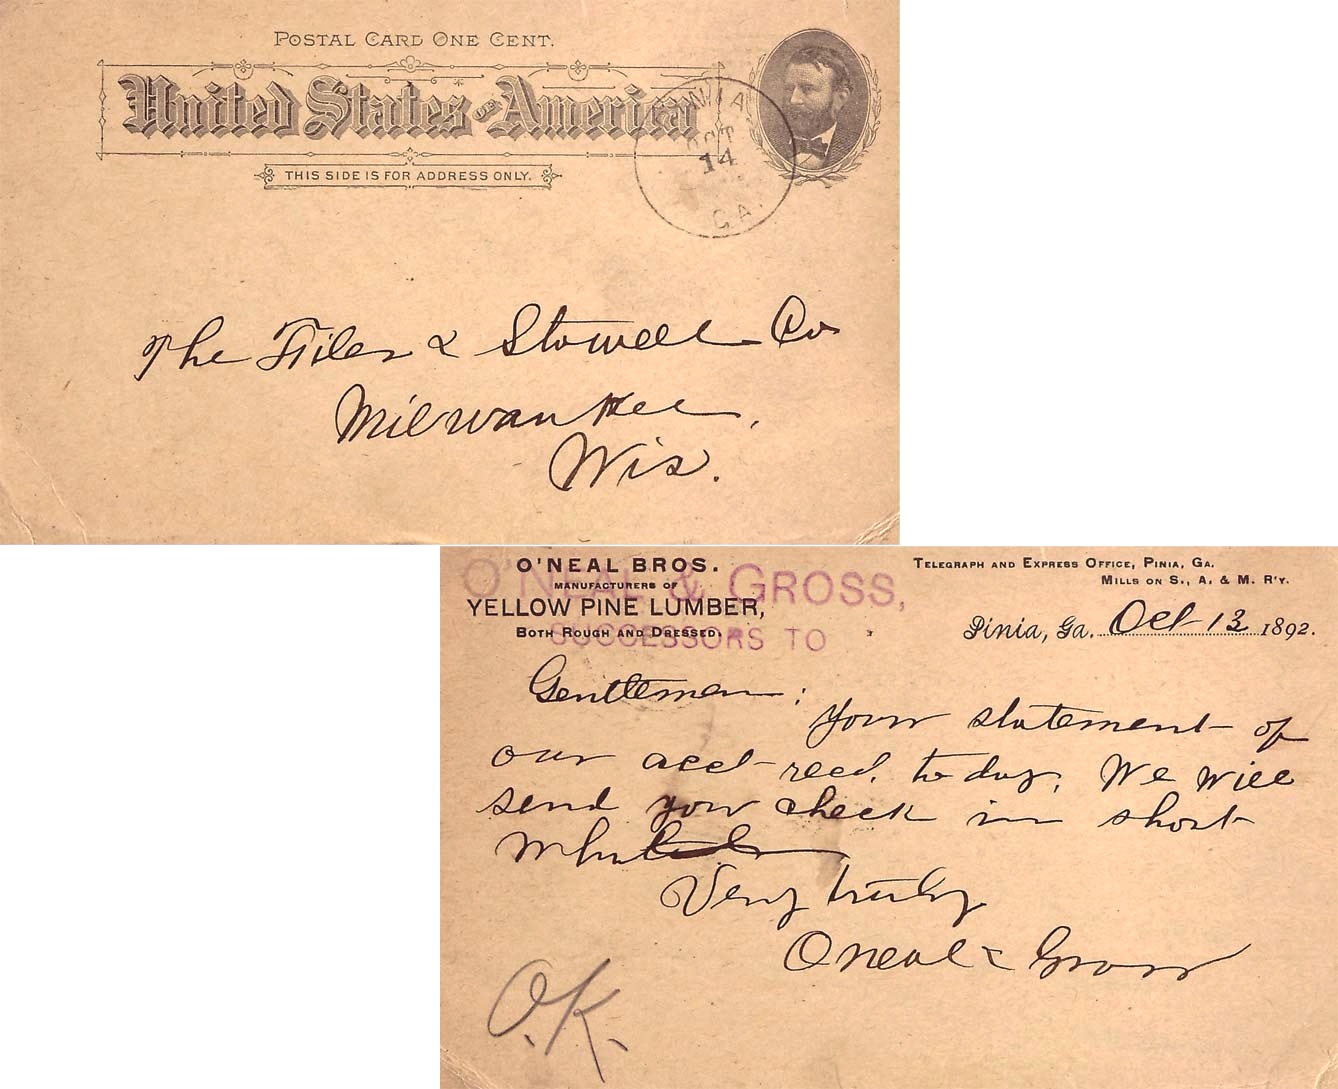 POSTAL CARD ONE CENT.
United States OF America
THIS SIDE IS FOR ADDRESS ONLY.
OCT
14
GA.
The Filer & Stowell Co
Milwaukee,
Wis.
O'NEAL BROS.
MANUFACTURERS OF
YELLOW PINE LUMBER,
BOTH ROUGH AND DRESSED.
O'NEAL & GROSS,
SUCCESSORS TO
TELEGRAPH AND EXPRESS OFFICE, PINIA, GA.
MILLS ON S., A. & M. R'Y.
Pinia, Ga. Oct 13 1892.
Gentlemen:
Your statement of
our acct recd. to day. We will
send you check in short
Very truly
Oneal & Gross
O.K.